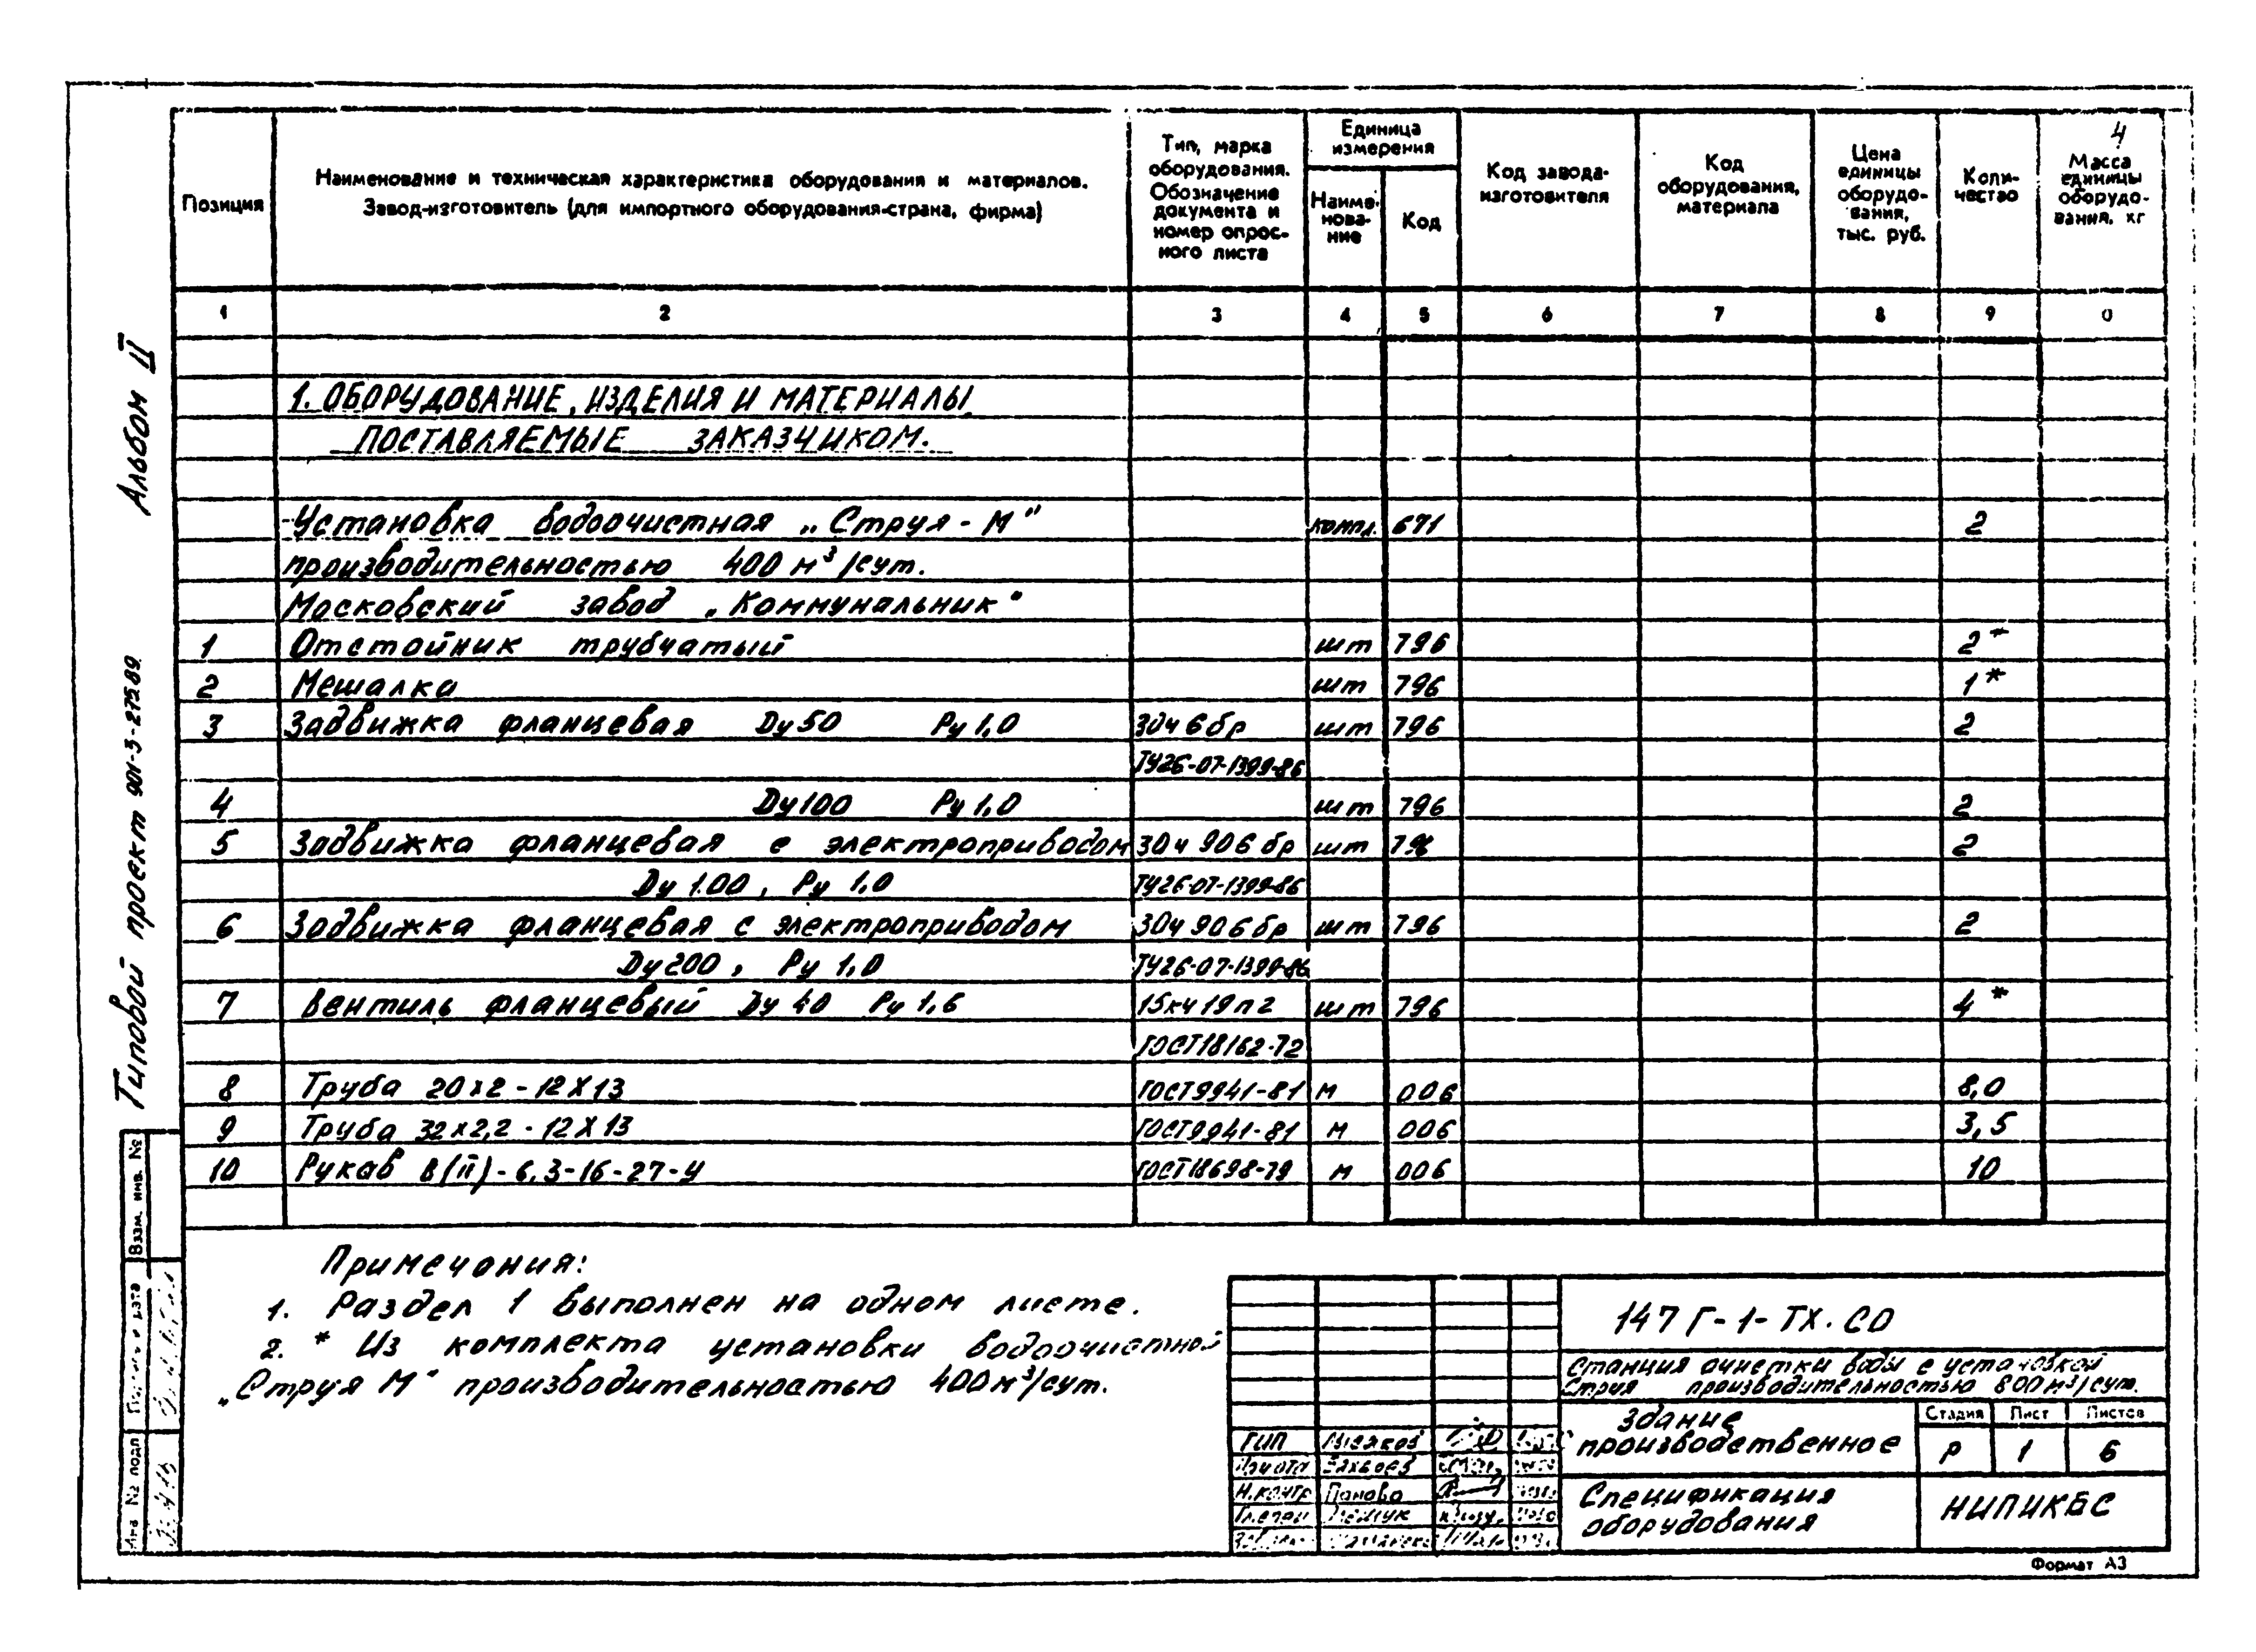 4
Позиция
Наименование и техническая характеристика оборудования и материалов.
Завод-изготовитель (для импортного оборудования-страна, фирма)
Тип, марка
оборудования.
Обозначение
документа и
номер опрос-
ного листа
Единица
измерения
Наиме-
нова-
ние
Код
Код завода-
изготовителя
Код
оборудования,
материала
Цена
единицы
оборудо-
вания,
тыс. руб.
Коли-
чество
Масса
единицы
оборудо-
вания, кг
1 2 3 4 5 6 7 8 9 0
1. ОБОРУДОВАНИЕ, ИЗДЕЛИЯ И МАТЕРИАЛЫ
ПОСТАВЛЯЕМЫЕ ЗАКАЗЧИКОМ.
Установка водоочистная „Струя-М" компл. 671 2
производительностью 400 м³/сут.
Московский завод „Коммунальник"
1 Отстойник трубчатый шт 796 2*
2 Мешалка шт 796 1*
3 Задвижка фланцевая Dу50 Ру1,0 30ч6бр шт 796 2
ТУ26-07-1399-86
4 Dу100 Ру1,0 шт 796 2
5 Задвижка фланцевая с электроприводом 30ч906бр шт 796 2
Dу100, Ру 1,0 ТУ26-07-1399-86
6 Задвижка фланцевая с электроприводом 30ч906бр шт 796 2
Dу200, Ру 1,0 ТУ26-07-1399-86
7 Вентиль фланцевый Dу40 Ру1,6 15кч19п2 шт 796 4*
ГОСТ18162-72
8 Труба 20х2-12Х13 ГОСТ9941-81 м 006 8,0
9 Труба 32х2,2-12Х13 ГОСТ9941-81 м 006 3,5
10 Рукав В(II)-6,3-16-27-У ГОСТ18698-79 м 006 10
Примечания:
1. Раздел 1 выполнен на одном листе.
2. * Из комплекта установки водоочистной
„Струя М" производительностью 400м³/сут.
Альбом II
Типовой проект 901-3-275.89
Взам. инв. №
Инв № подл
147 Г-1-ТХ.СО
Станция очистки воды с установкой
Струя производительностью 800м³/сут.
Здание
производственное
Стадия Лист Листов
Р 1 6
Спецификация
оборудования
НИПИКБС
ГИП
Н.контр Панова
Формат А3